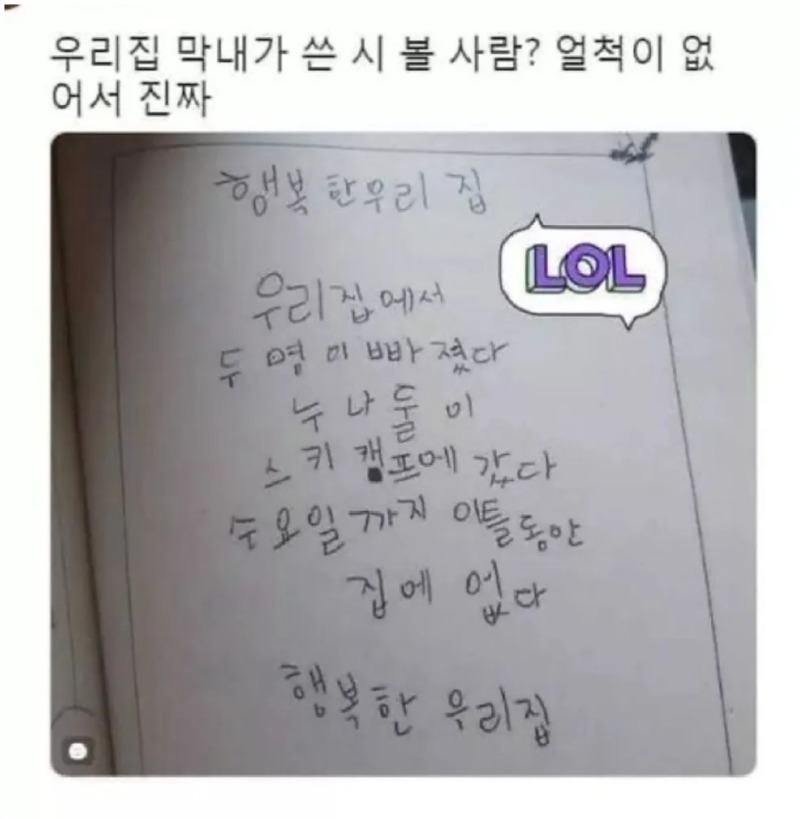 우리집 막내가 쓴 시 볼 사람? 얼척이 없
어서 진짜
행복한우리 집
LOL
우리집에서
두 명이 빠졌다
누나 둘이
스키 캠프에 갔다
수요일까지 이틀동안
집에 없다
행복한 우리집